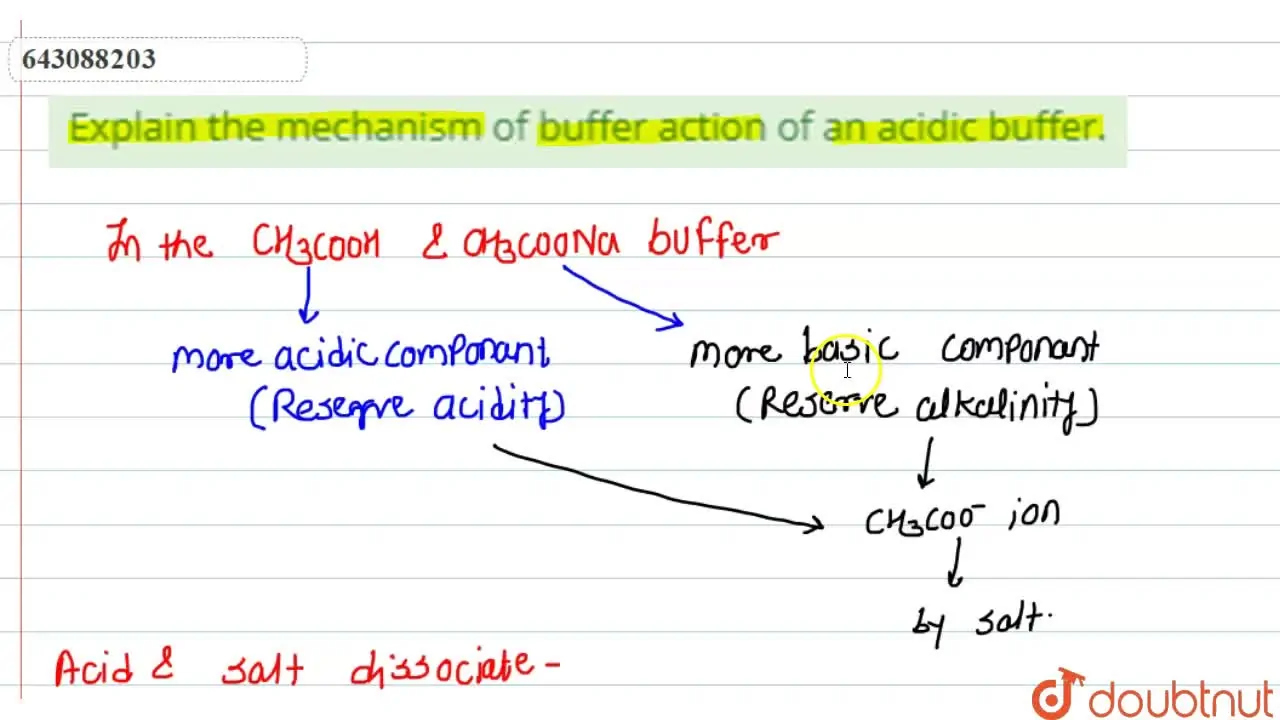 643088203
Explain the mechanism of buffer action of an acidic buffer.
In the CH3COOH & CH3COONa buffer
more acidic componant
more basic componant
(Reserve acidity)
(Reserve alkalinity)
CH3COO⁻ ion
by salt.
Acid & salt dissociate -
doubtnut